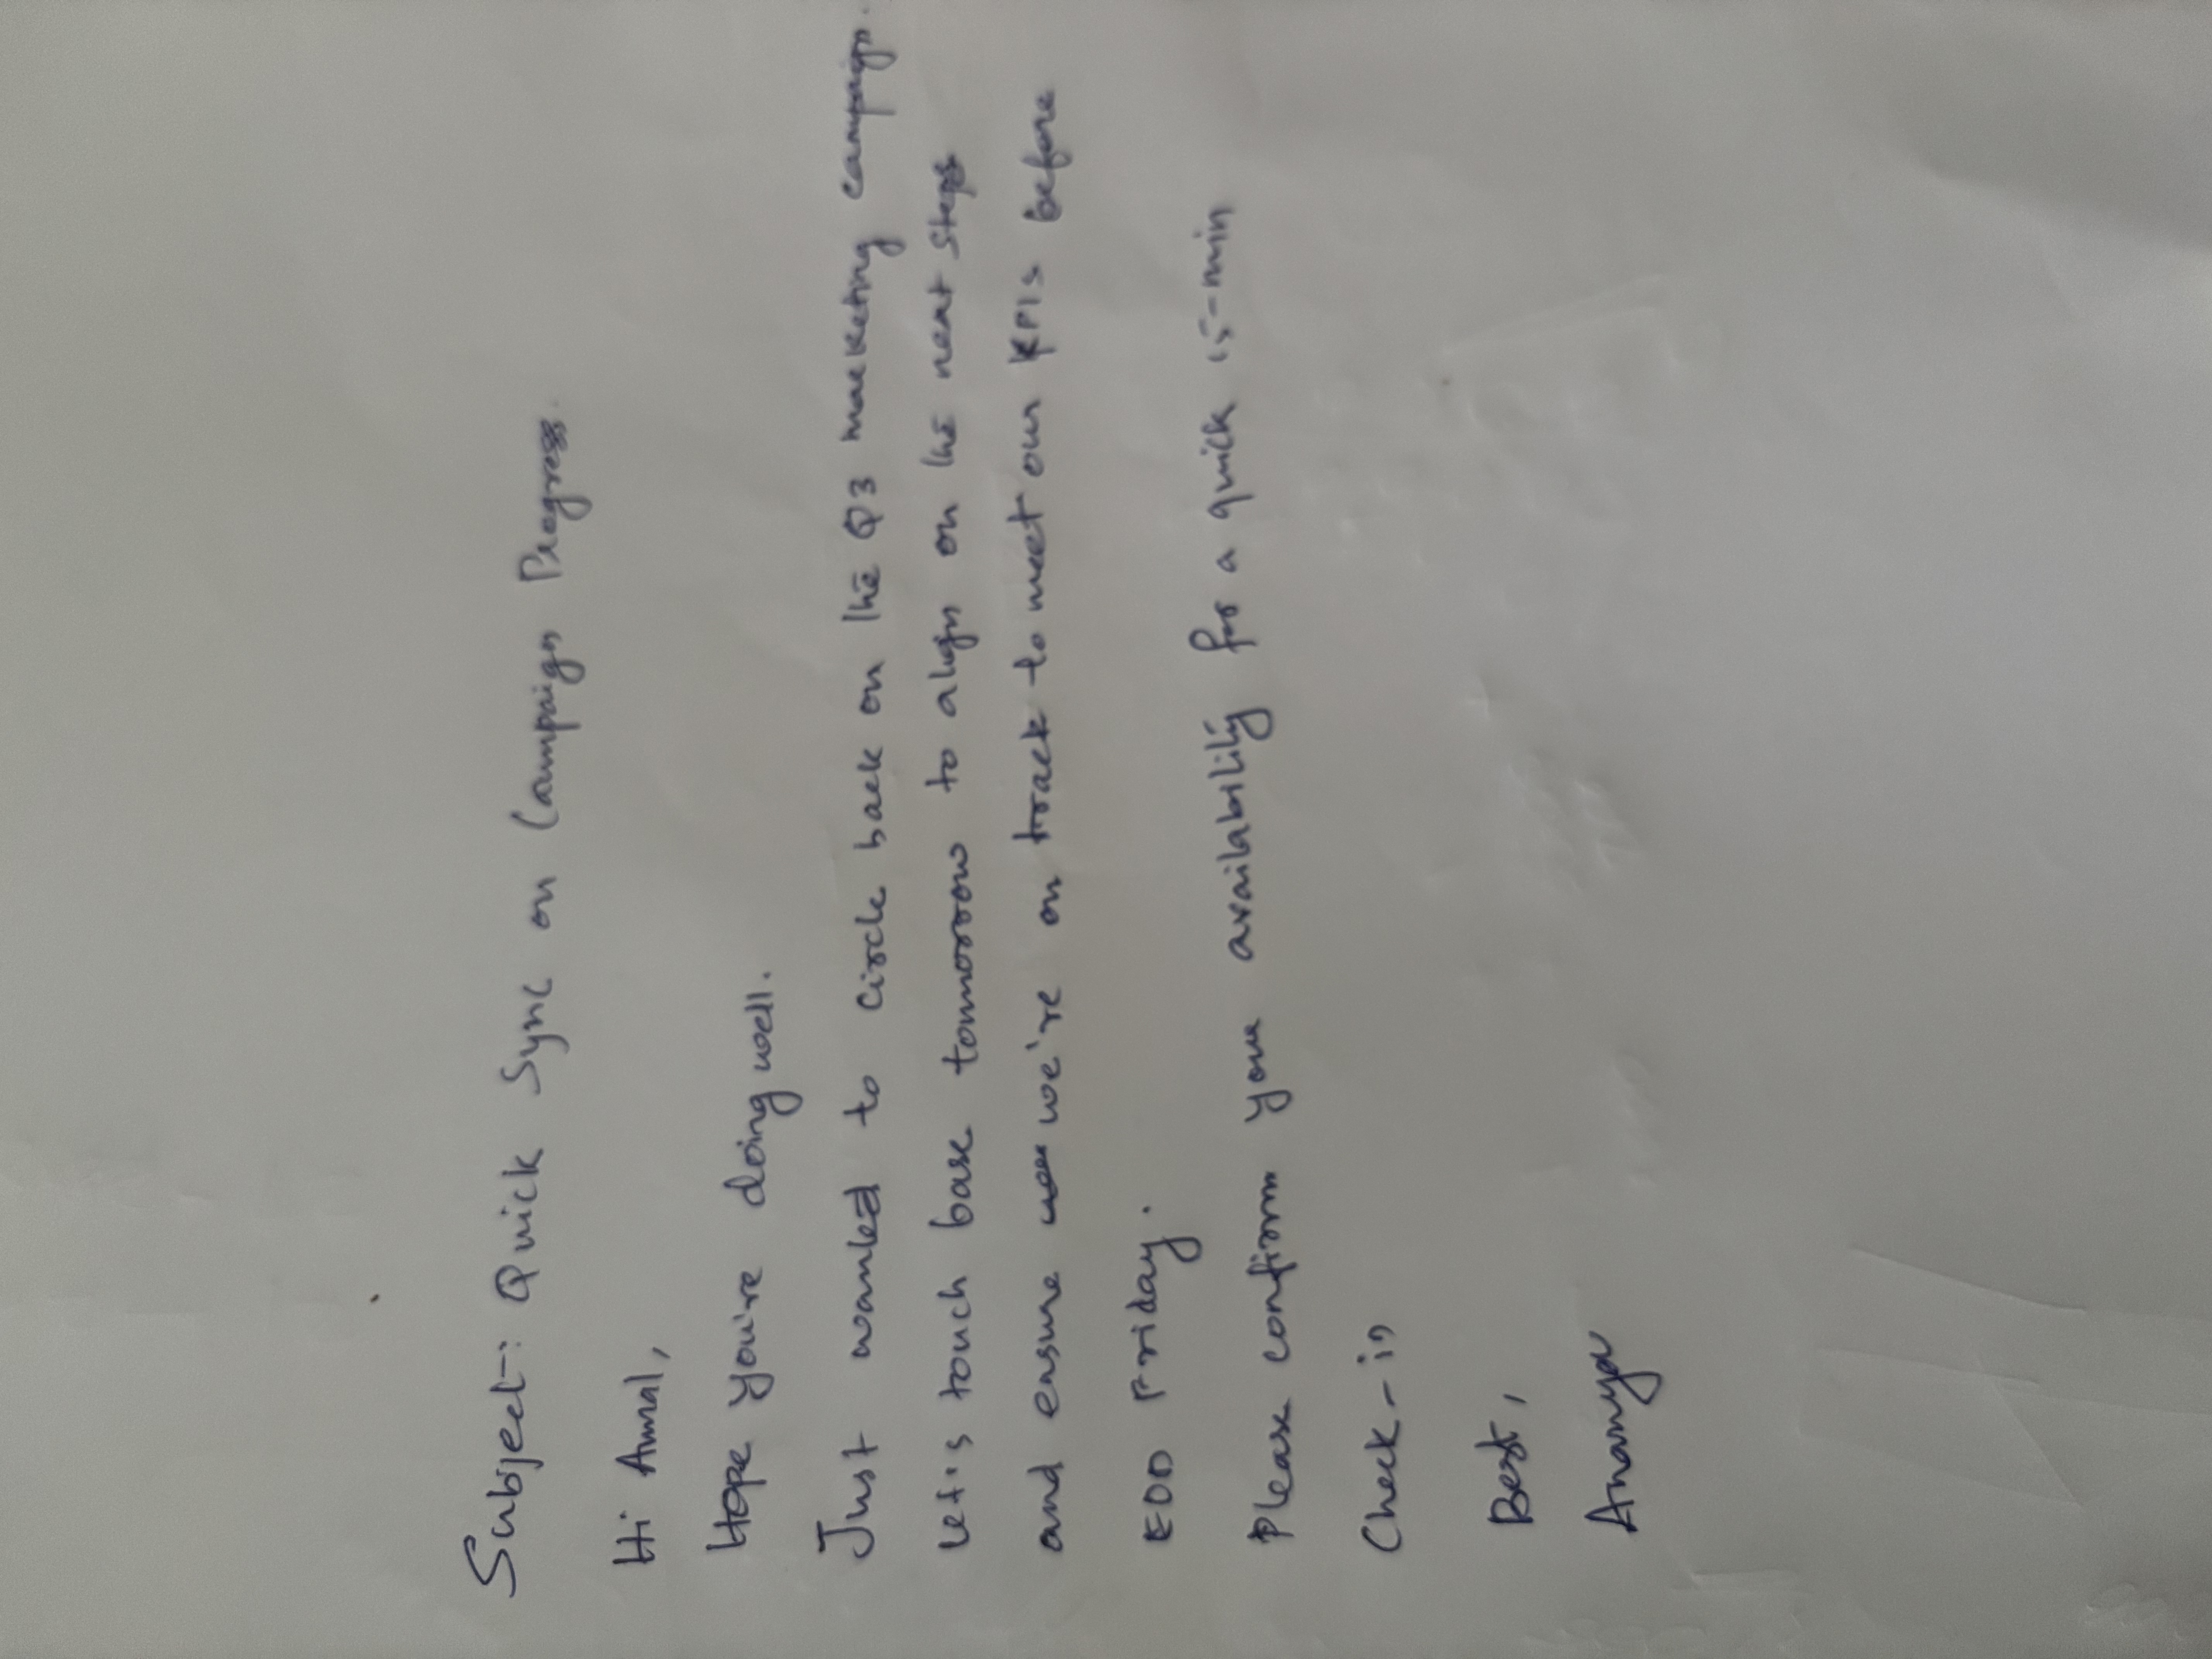 Subject: Quick Sync on Campaign Progress.
Hi Anmal,
Hope you're doing well.
Just wanted to circle back on the Q3 marketing campaign.
Let's touch base tomorrow to align on the next steps
and ensure we're on track to meet our KPIs before
EOD Friday.
Please confirm your availability for a quick 15-min
Check-in
Best,
Ananya